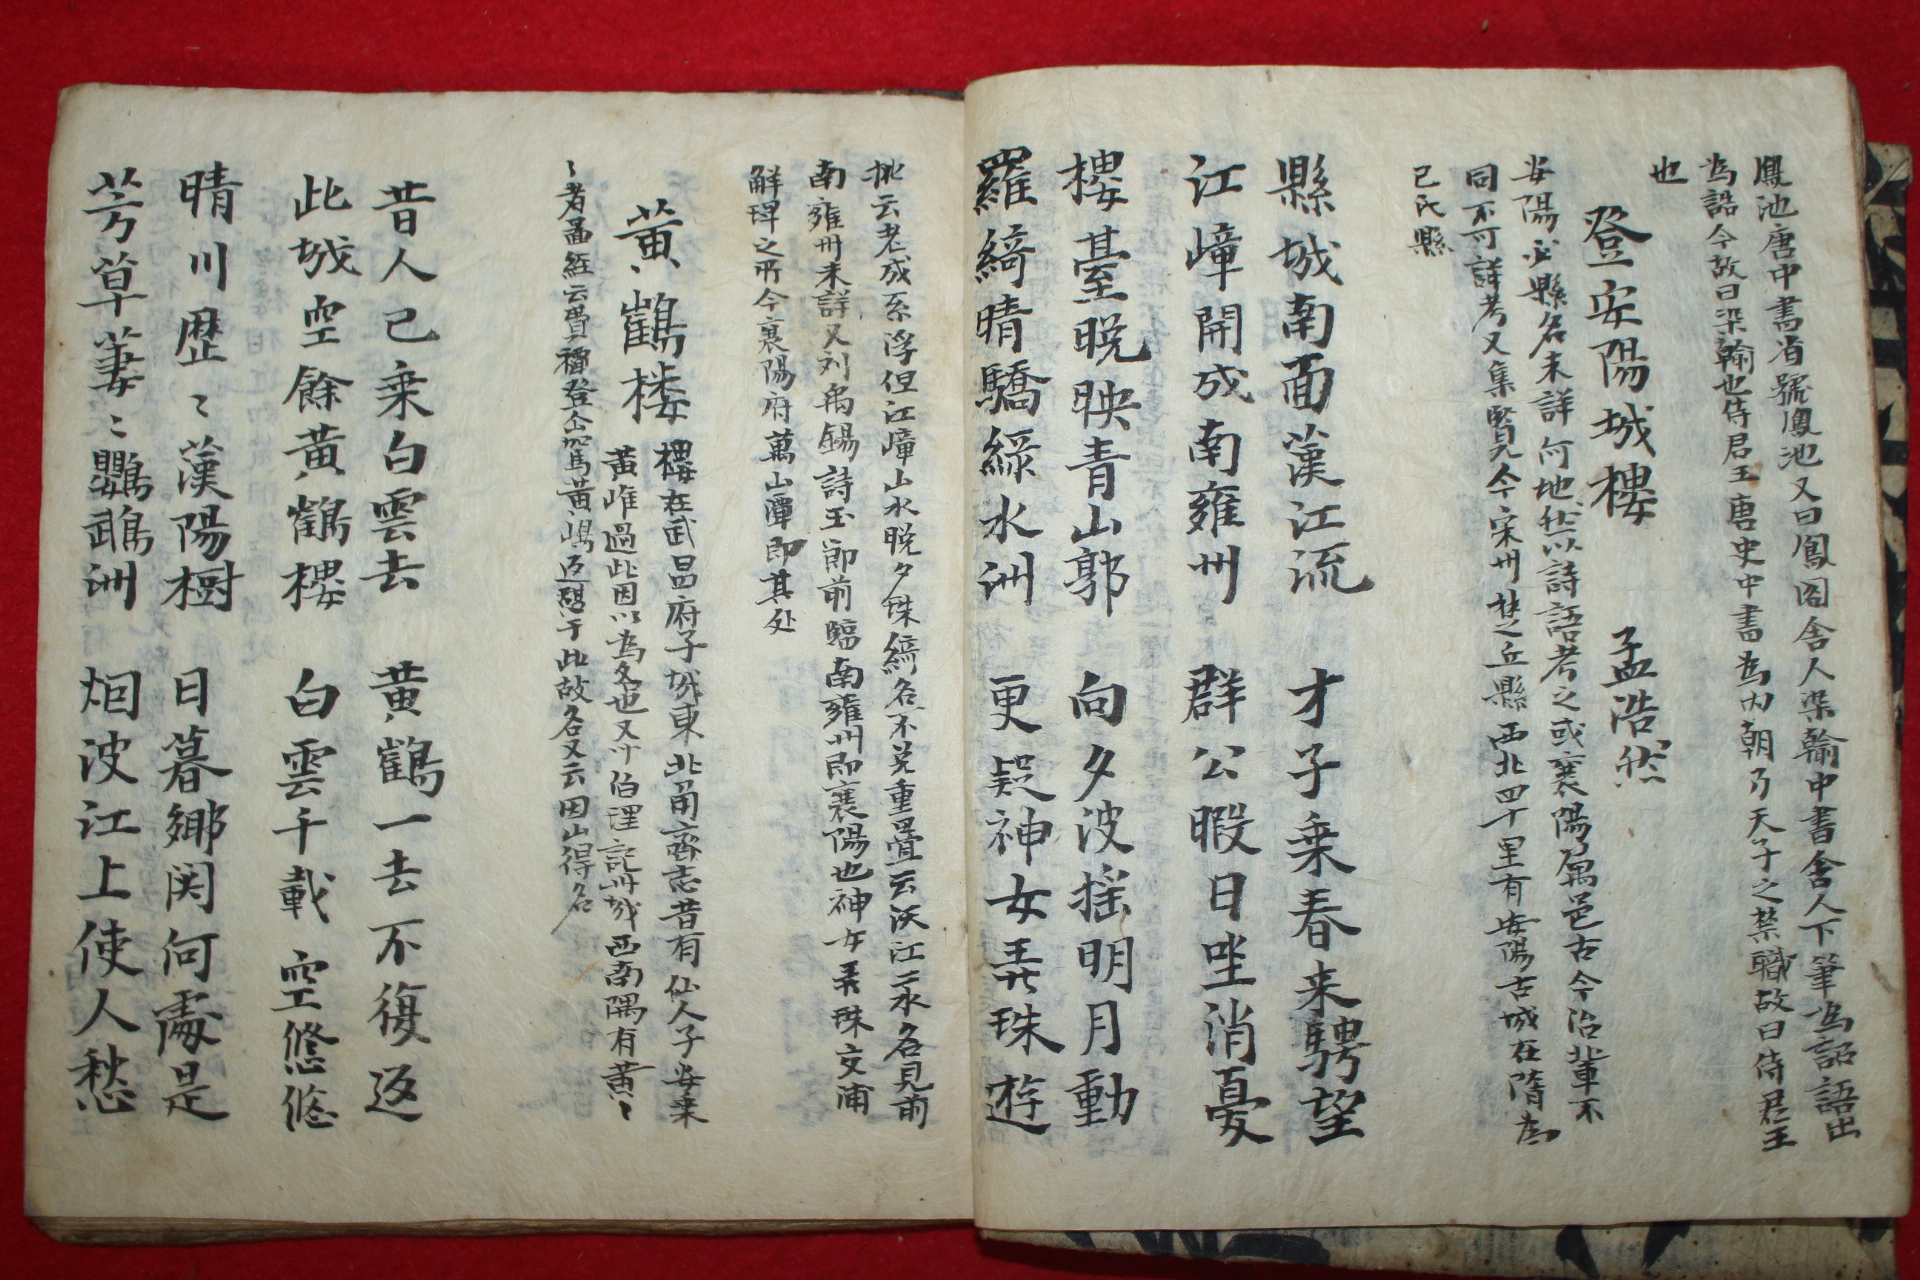 鳳池唐中書省號鳳池又曰鳳閣舍人梁翰中書舍人下筆為詔語出
為誥今故曰梁翰也侍君王唐史中書為內朝乃天子之禁職故曰侍君王
也
登安陽城樓 孟浩然
安陽必縣名未詳何地然以詩語考之或襄陽屬邑古今治革不
同不可詳考又集賢今宋州楚丘縣西北四十里有安陽古城在隋為
己氏縣
縣城南面漢江流 才子乘春來騁望
江嶂開成南雍州 群公暇日坐消憂
樓臺晩映青山郭 向夕波搖明月動
羅綺晴驕綠水洲 更疑神女弄珠遊
批云老成系浮但江嶂山水晩夕珠綺名不免重疊云沃江三永名見前
南雍州未詳又刘禹錫詩玉節前臨南雍州即襄陽也神女弄珠交浦
解珥之所今襄陽府萬山潭即其处
黃鶴楼 樓在武昌府子城東北角齊志昔有仙人子安乘
黃崔過此因以為名也又卞伯理記州城西南隅有黃〻
〻者圖經云費褘登仙駕黃鶴返憩于此故名又云因山得名
昔人已乘白雲去 黃鶴一去不復返
此城空餘黃鶴樓 白雲千載空悠悠
晴川歷〻漢陽樹 日暮鄉関何處是
芳草萋〻鸚鵡洲 烟波江上使人愁